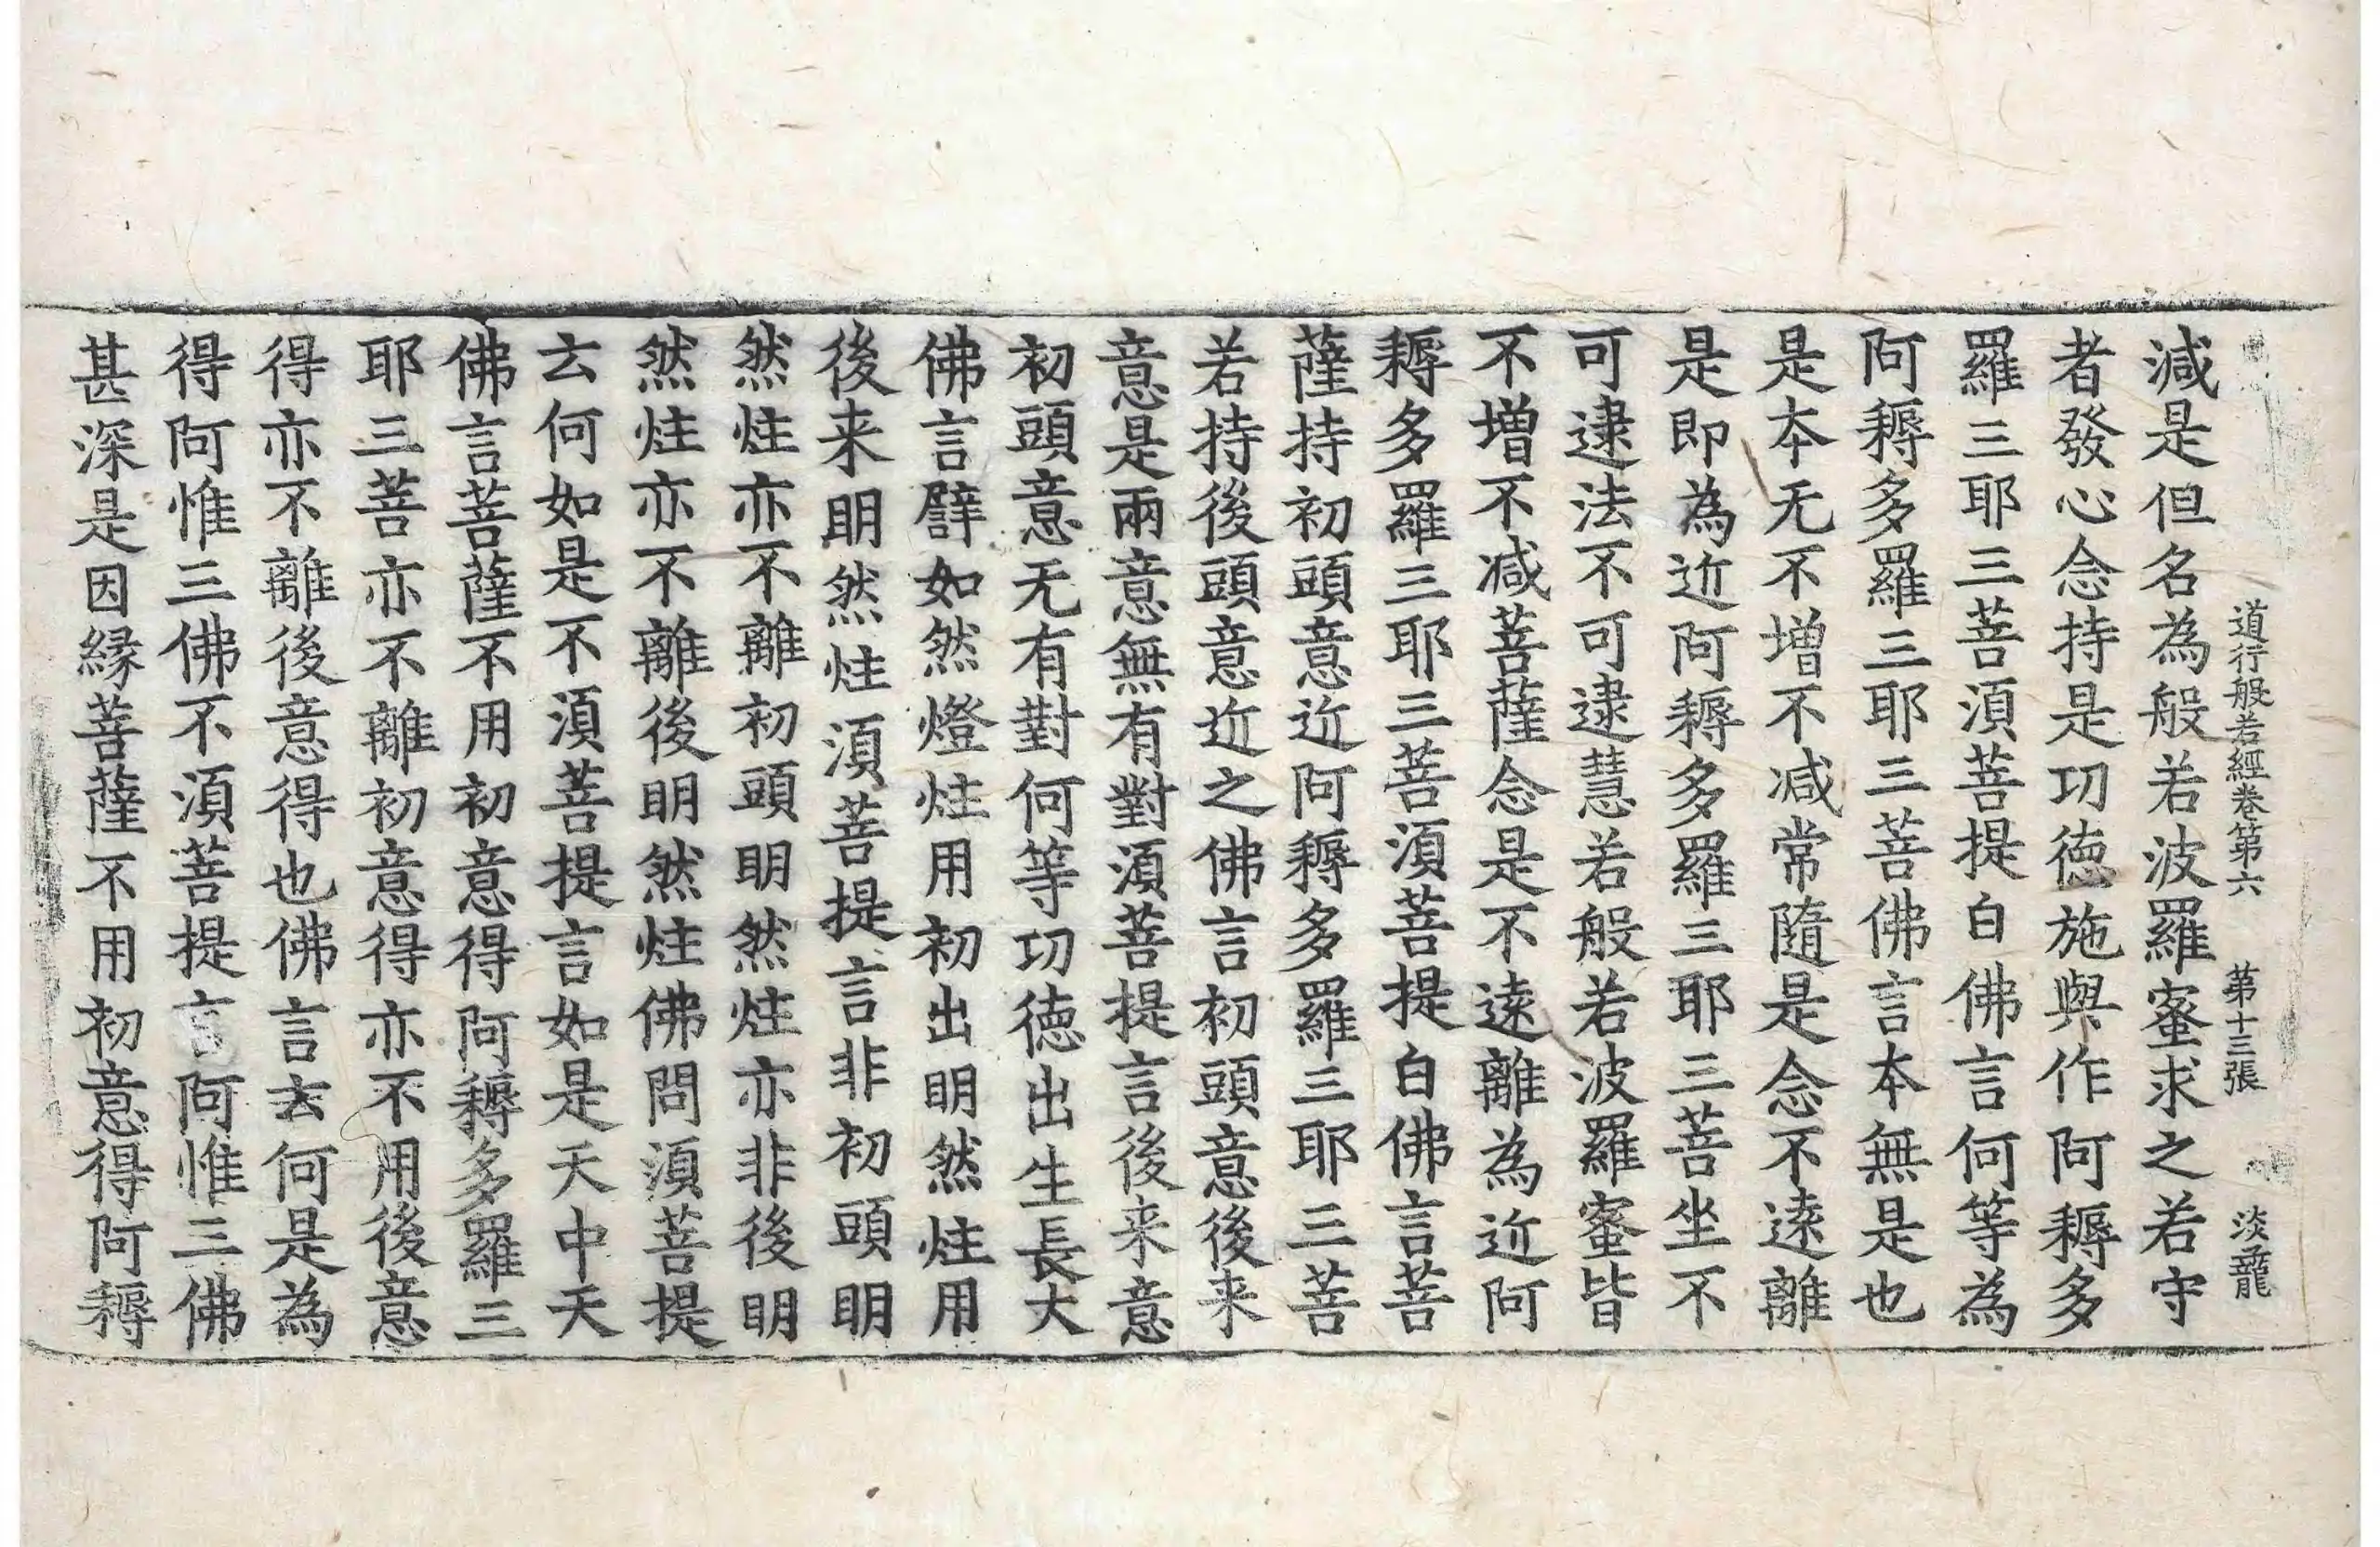 道行般若經卷第六　第十三張　淡龍
減是但名為般若波羅蜜求之若守
者發心念持是功德施與作阿耨多
羅三耶三菩須菩提白佛言何等為
阿耨多羅三耶三菩佛言本無是也
是本无不增不减常隨是念不遠離
是即為近阿耨多羅三耶三菩坐不
可逮法不可逮慧若般若波羅蜜皆
不增不减菩薩念是不遠離為近阿
耨多羅三耶三菩須菩提白佛言菩
薩持初頭意近阿耨多羅三耶三菩
若持後頭意近之佛言初頭意後来
意是兩意無有對須菩提言後来意
初頭意无有對何等功德出生長大
佛言譬如然燈炷用初出明然炷用
後来明然炷須菩提言非初頭明
然炷亦不離初頭明然炷亦非後明
然炷亦不離後明然炷佛問須菩提
云何如是不須菩提言如是天中天
佛言菩薩不用初意得阿耨多羅三
耶三菩亦不離初意得亦不用後意
得亦不離後意得也佛言云何是為
得阿惟三佛不須菩提言阿惟三佛
甚深是因緣菩薩不用初意得阿耨